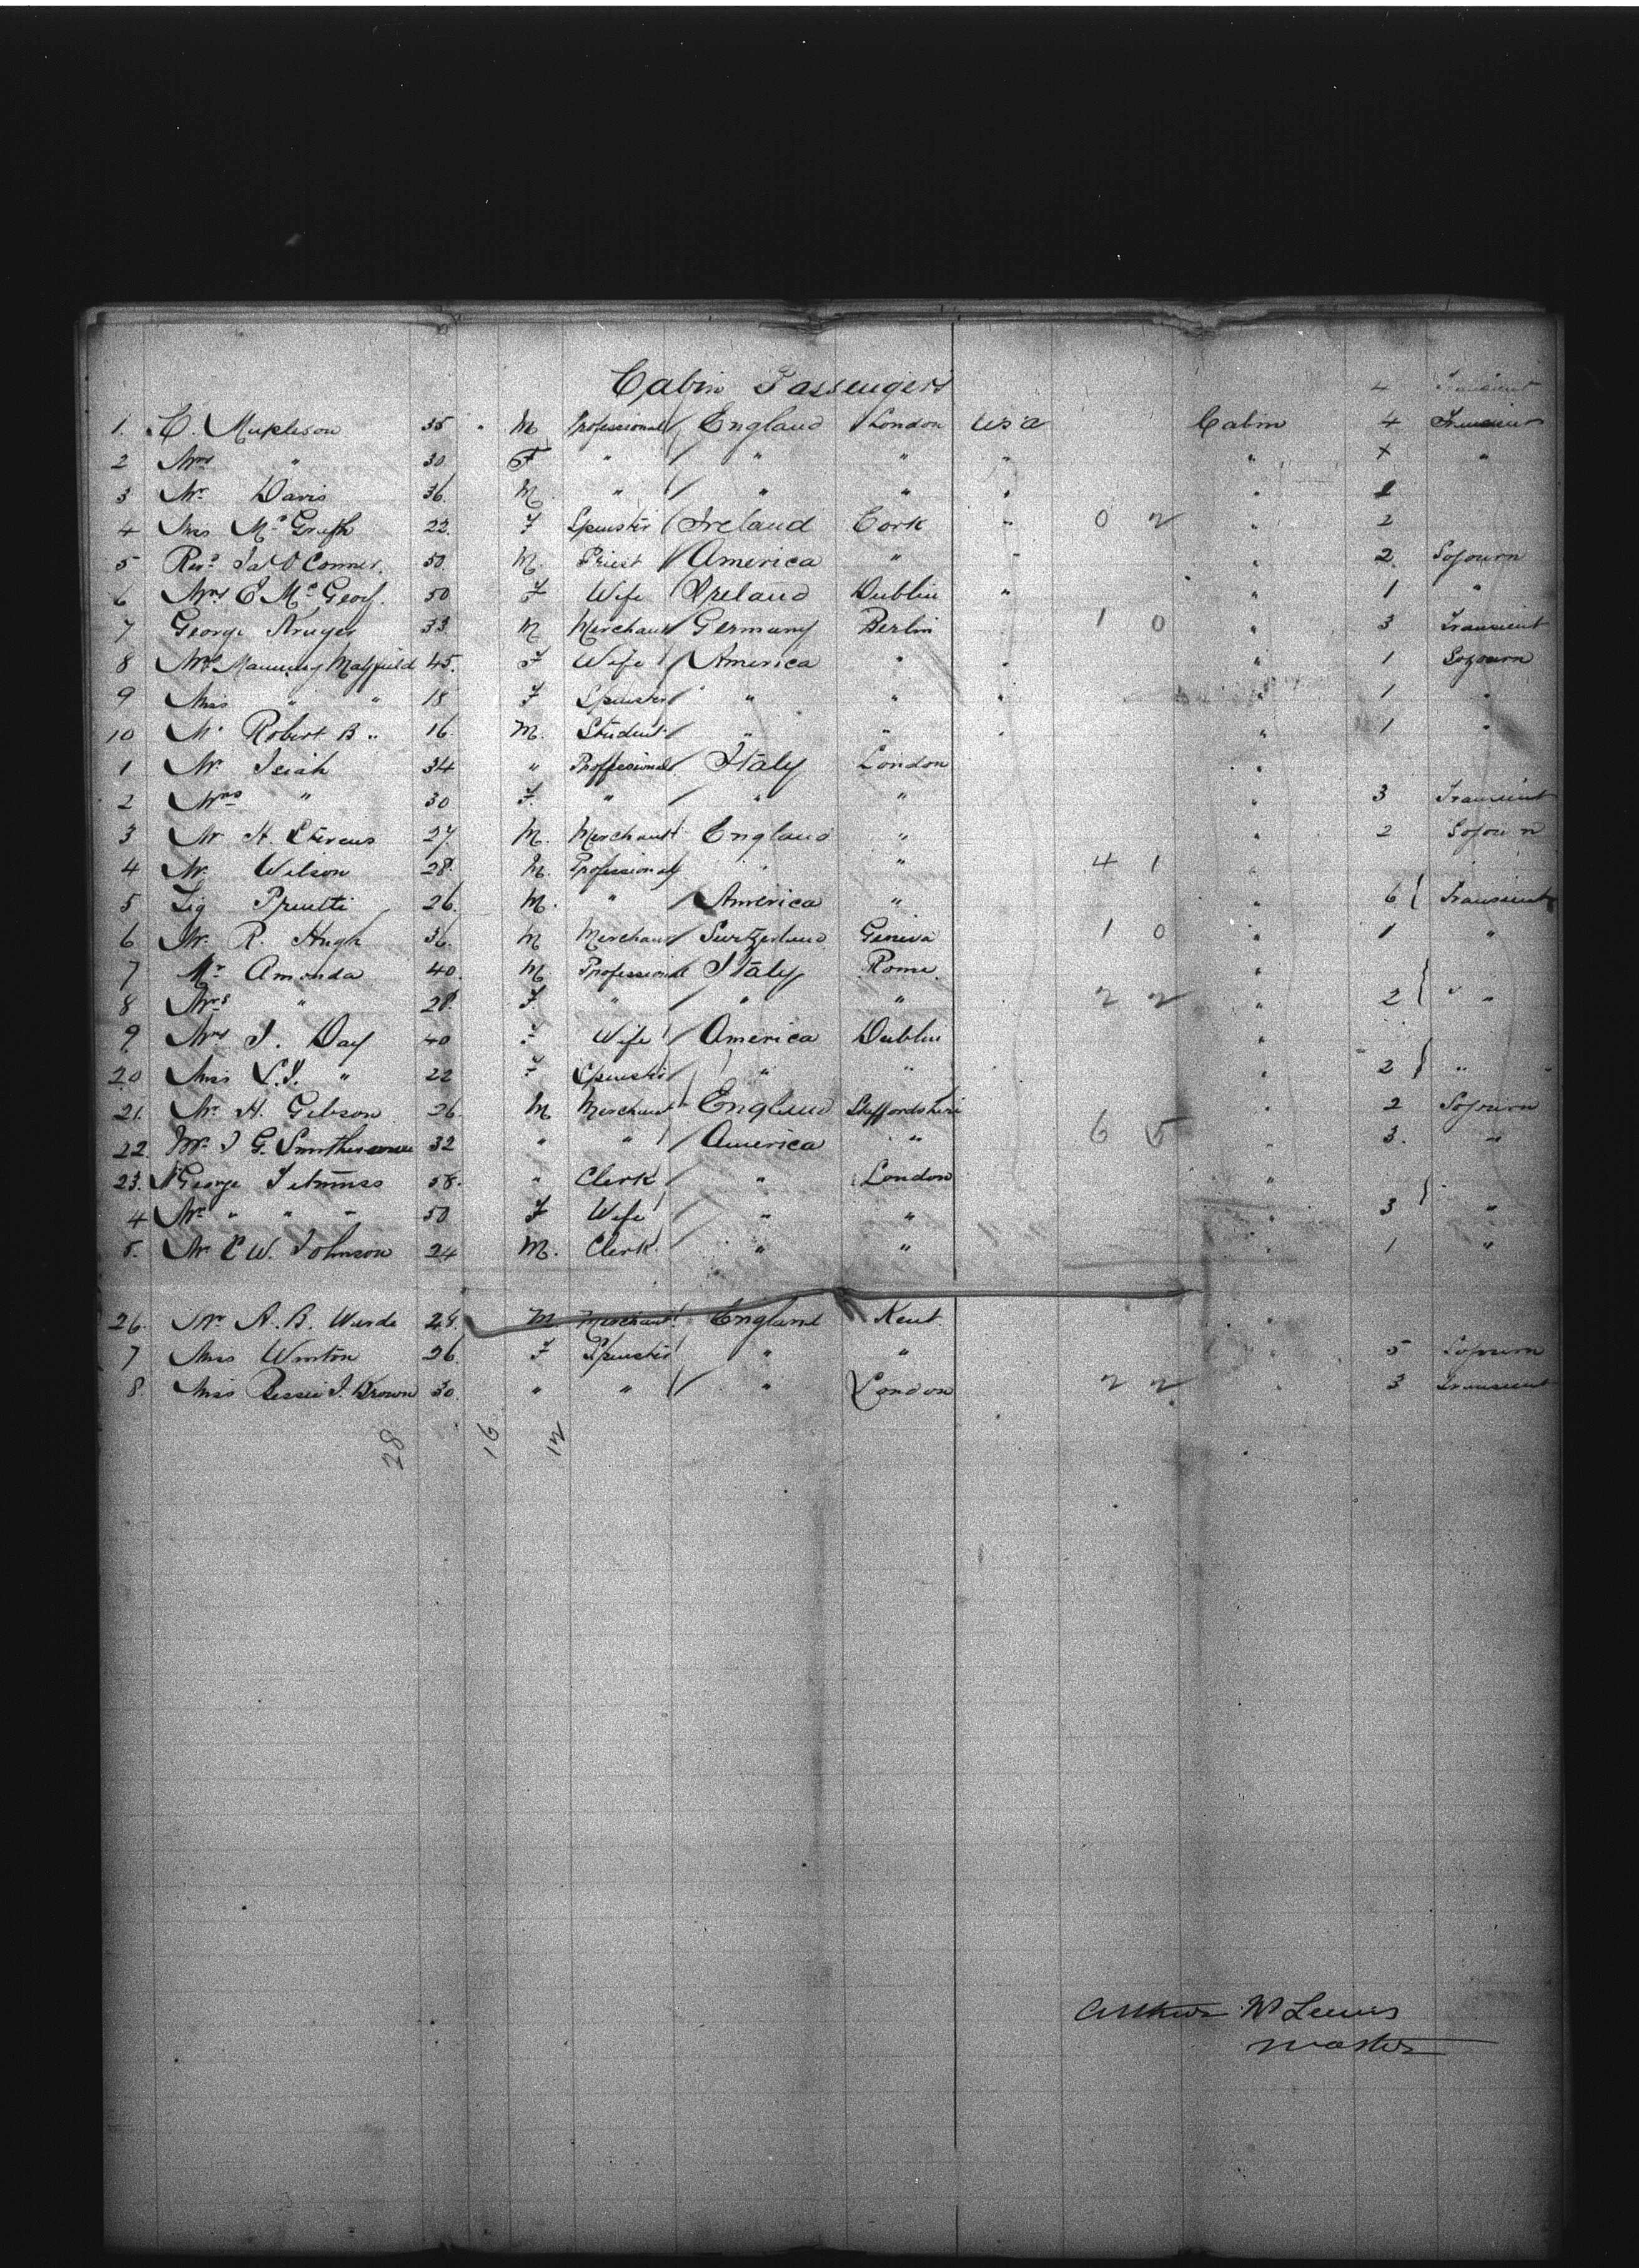 Cabin Passengers
4 Transient
1. C. Mapleson 35 M Professional England London USA Cabin 4 Transient
2 Mrs " 30 F " " " " " x "
3 Mr Davis 36. M " " " " " 1
4 Miss Mc 22 F Spinster Ireland Cork " 0 2 " 2
5 Revd Jas O Conner. 50. M. Priest America " " " 2. Sojourn
6 Mrs E Mc 50 F Wife Ireland Dublin " " 1 "
7 George Kruger 33 M Merchant Germany Berlin 1 0 " 3 Transient
8 Mrs Manning 45. F Wife America " " " 1 Sojourn
9 Miss " " 18 F Spinster " " " " 1 "
10 Mr Robert B " 16. M. Student " " " " 1 "
1 Mr 34 " Proffesional Italy London "
2 Mrs " 30 F. " " " " 3 Transient
3 Mr H. Stevens 27. M. Merchant England " " 2 Sojourn
4 Mr. Wilson 28. M. Professional " " 4 1 "
5 Sig 26. M. " America " " 6 { Transient
6 Mr. R. Hugh 36. M Merchant Switzerland Geneva 1 0 " 1 "
7 Mr Amonda 40. M. Professional Italy Rome. "
8 Mrs " 28. F. " " " 2 2 " 2 { " "
9 Mrs J. Day 40 F Wife America Dublin "
20 Miss L.J. " 22 F Spinster " " " 2 } "
21. Mr. H. Gibson 26. M Merchant England Staffordshire " 2 Sojourn
22. Mr J G. 32 " " America " 6 5 " 3. "
23. George 58. " Clerk " London "
4 Mrs " " " 50 F Wife " " " 3 } "
5. Mr E W. Johnson 24 M. Clerk. " " " 1 "
26. Mr A. B. M. Merchant England Kent. "
7 Miss Winton 26. F Spinster " " 5 Sojourn
8 Miss Bessie J. Brown 30. " " " London 2 2 " 3 Transient
28 16 12
Arthur W Lewis
Master